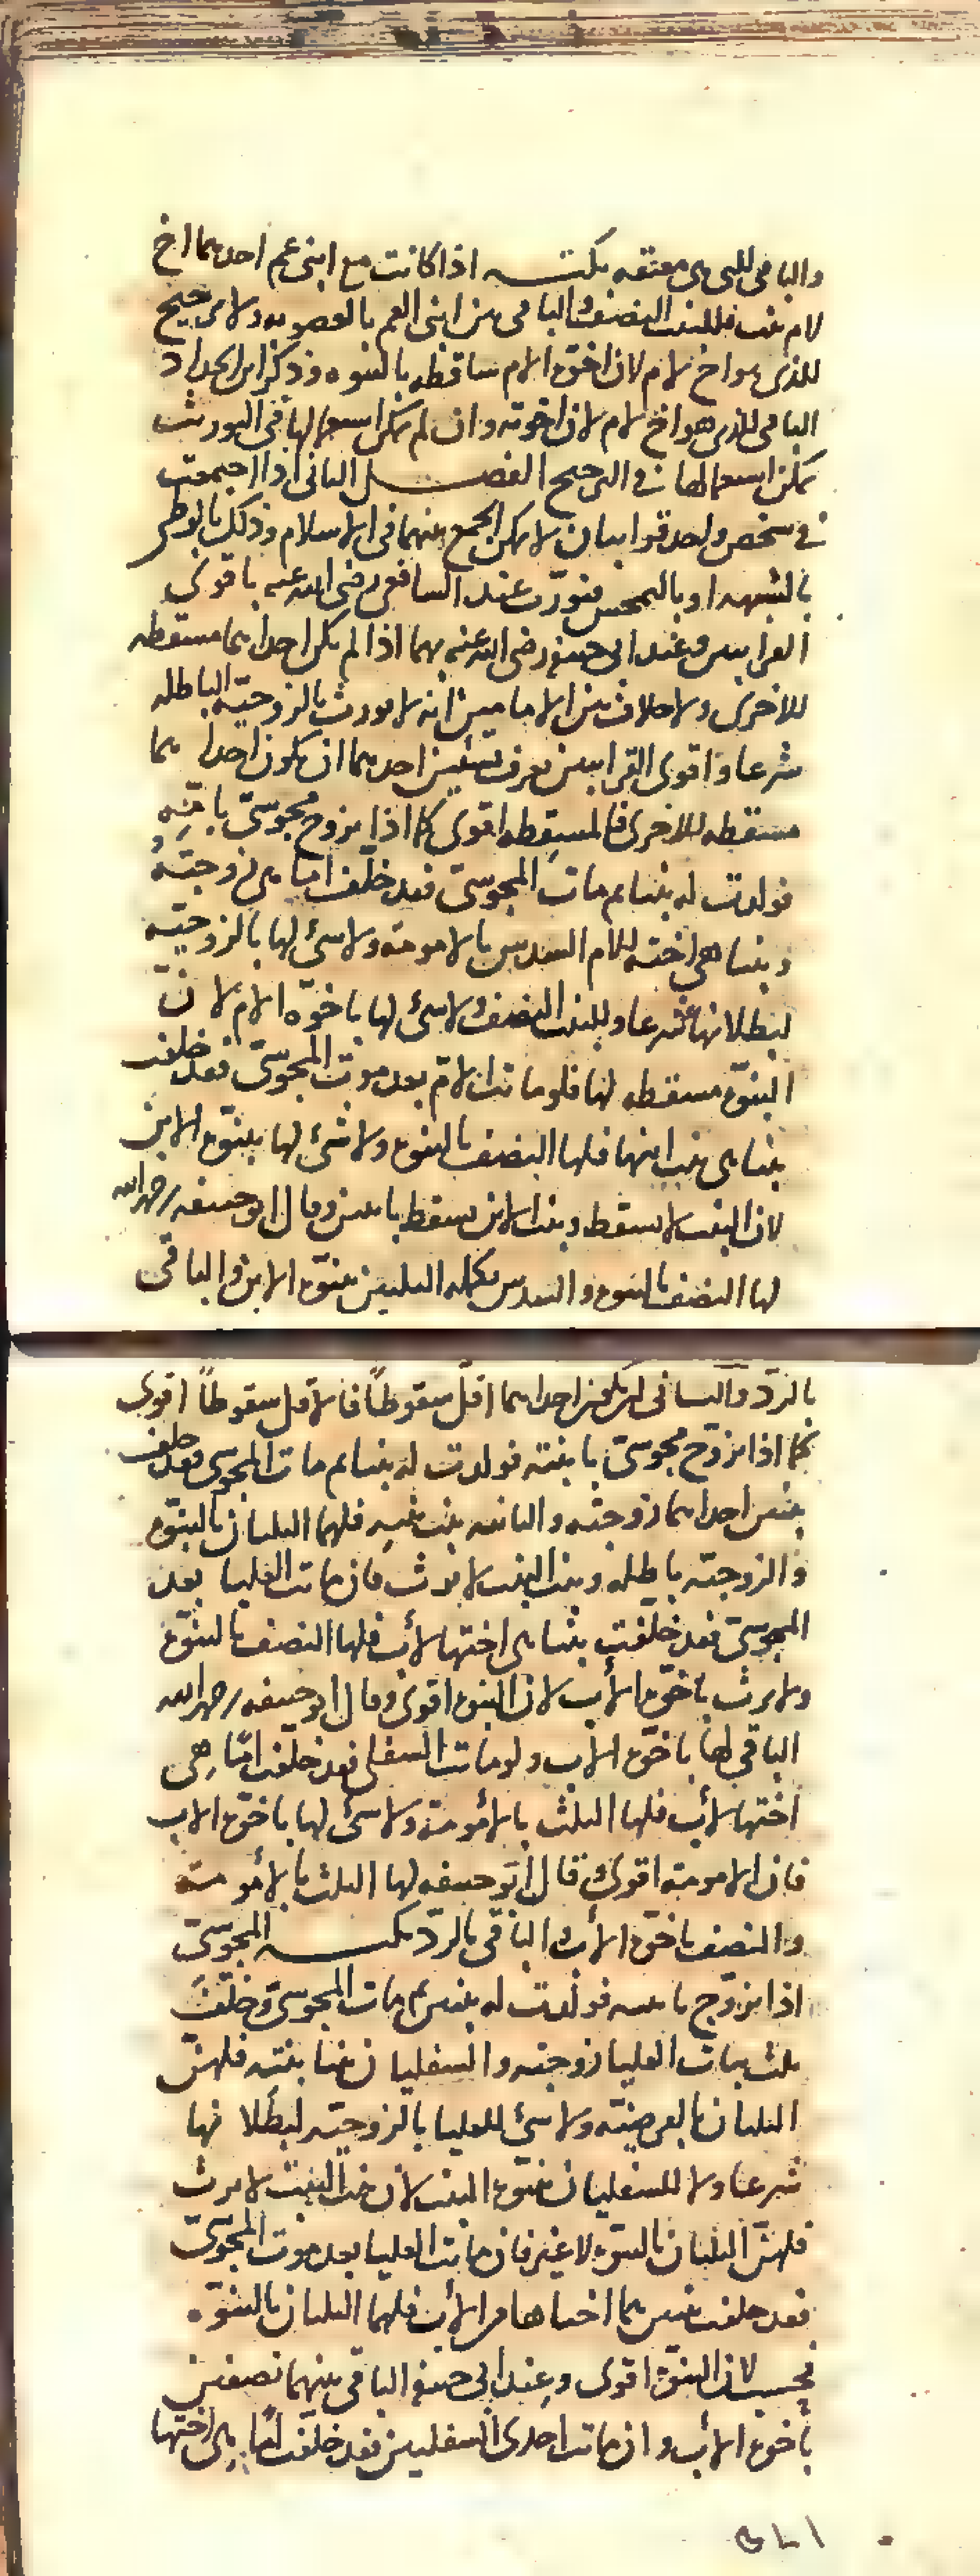 والباقى للتى هى معتقه نكتــــه اذا كانت مع ابنى عم احدهما اخ
لام بنت فللبنت النصف والباقى بين ابنى العم بالعصوبه ولا ترجيح
للذى هو اخ لام لان اخوة الام ساقطه بالبنوه وذكر ابن الحداد
الباقى للذى هو اخ لام لان اخوته وان لم يمكن استعمالها فى التوريث
يمكن استعمالها فى الترجيح الفصـــــل الثانى اذا اجتمعت
فى شخص واحد قرابتان لا يمكن الجمع بينهما فى الاسلام وذلك بالوطى
بالشبهه او بالتمجس فتورث عند الشافعى رضى الله عنه باقوى
القرابتين وعند ابى حنيفه رضى الله عنه بهما اذا لم تكن احداهما مسقطه
للاخرى ولا خلاف بين الامامين انه لا يورث بالزوجيّه الباطله
شرعا واقوى القرابتين يعرف بشيئين احدهما ان تكون احداهما
مسقطه للاخرى فالمسقطه اقوى كما اذا تزوج مجوسىّ بامّه
فولدت له بنتا ثم مات المجوسىّ فقد خلّف امّا هى زوجته
وبنتا هى اخته للام السدس بالامومة ولا شئ لها بالزوجيّه
لبطلانها شرعا وللبنت النصف ولا شئ لها باخوّة الام لان
البنوّة مسقطه لها فلو ماتت الامّ بعد موت المجوسىّ فقد خلفت
بنتا هى بنت ابنها فلها النصف بالبنوة ولا شئ لها ببنوّة الابن
لان البنت لا تسقط وبنت الابن تسقط باثنتين وقال ابو حنيفه رحمه الله
لها النصف بالبنوة والسدس تكمله الثلثين ببنوّة الابن والباقى
بالردّ والثانى ان تكون احداهما اقلّ سقوطاً فالاقل سقوطاً اقوى
كما اذا تزوّج مجوسىّ بابنته فولدت له بنتا ثم مات المجوسى فقد خلف
بنتين احداهما زوجته والثانيه بنت بنته فلهما الثلثان بالبنوّة
والزوجيّة باطله وبنت البنت لا ترث فان ماتت العليا بعد
المجوسىّ فقد خلّفت بنتا هى اختها لأب فلها النصف بالبنوّة
ولا ترث باخوّة الأب لان البنوة اقوى وقال ابو حنيفه رحمه الله
الباقى لها باخوّة الاب ولو ماتت السفلى فقد خلّفت امّا هى
اختها لأب فلها الثلث بالأمومة ولا شئ لها باخوّة الاب
فان الامومة اقوى وقال ابو حنيفه لها الثلث بالأمومة
والنصف باخوّة الأب والباقى بالردّ نكتــــه المجوسىّ
اذا تزوّج بابنته فولدت له بنتين ثم مات المجوسىّ وخلّف
ثلث بنات العليا زوجته والسفليان بنتا بنته فلهنّ
الثلثان بالفرضيّة ولا شئ للعليا بالزوجيّه لبطلانها
شرعا ولا للسفليان ببنوّة البنت لان بنت البنت لا ترث
فلهنّ الثلثان بالبنوّة لا غير فان ماتت العليا بعد موت المجوسىّ
فقد خلفت بنتين هما اختاها من الأب فلهما الثلثان بالبنوّه
فحسب لان البنوّة اقوى وعند ابى حنيفه الباقى بينهما نصفين
باخوة الأب وان ماتت احدى السفليين فقد خلّفت امّا هى اختها